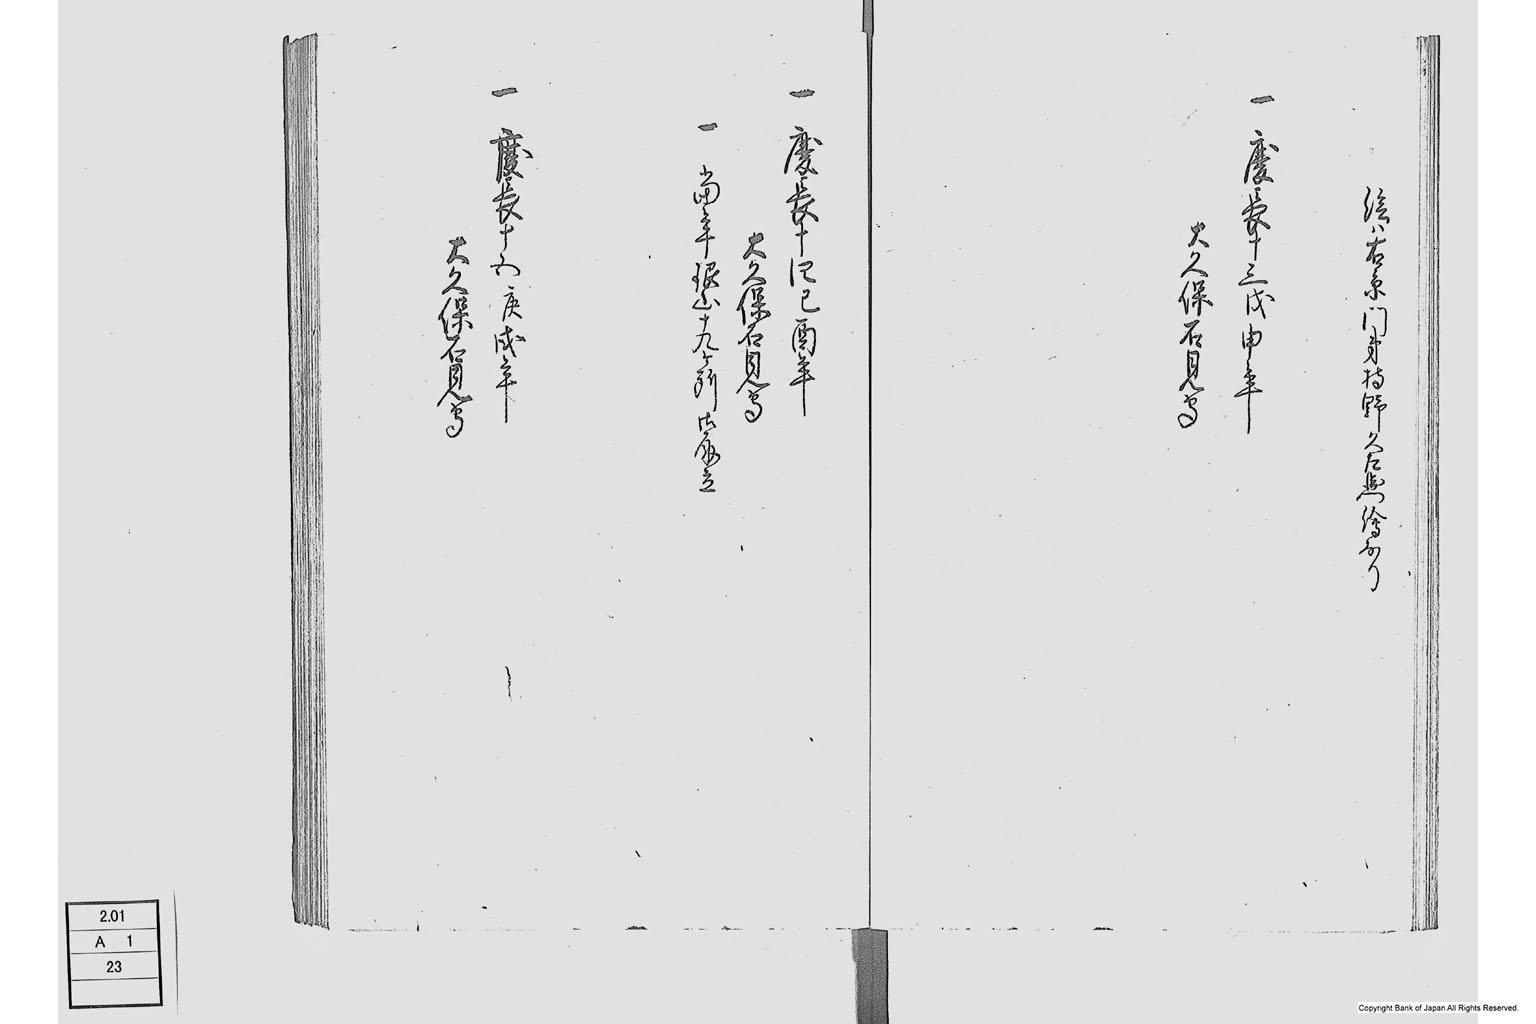 絵ハ右京門弟狩野久左衛繪なり
一 慶長十三戊申年
大久保石見守
一 慶長十四己酉年
大久保石見守
一 當年銀山十九ヶ所御取立
一 慶長十五庚戌年
大久保石見守
2.01
A 1
23
Copyright Bank of Japan All Rights Reserved.